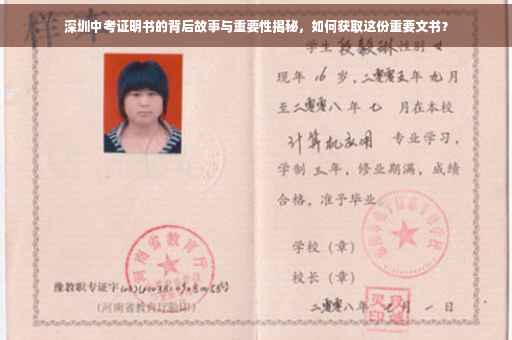 深圳中考证明书的背后故事与重要性揭秘，如何获取这份重要文书？
样本
学生段毅琳性别女
现年16岁，二零零五年九月
至二零零八年七月在本校
计算机应用专业学习，
学制三年，修业期满，成绩
合格，准予毕业
学校（章）
校长（章）
二零零八年七月一日
河南省教育厅
豫教职专证字
（河南省教育厅验印）